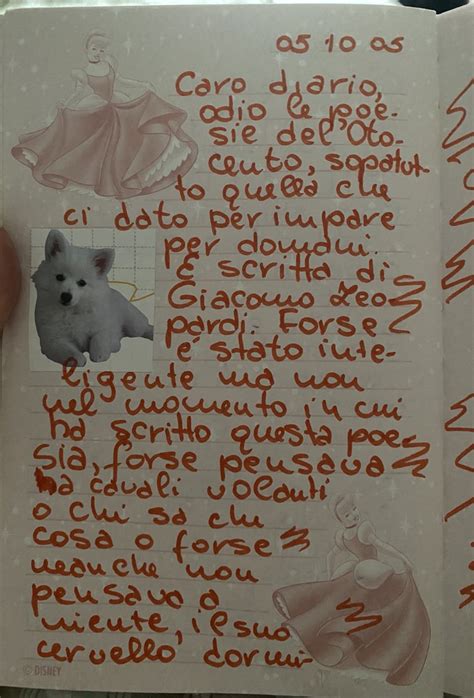 05 10 05
Caro diario,
odio le poe-
sie del'Oto-
cento, sopatut-
to quella che
ci dato per impare
per domani.
É scritta di
Giacomo Leo-
pardi. Forse
é stato inte-
ligente ma non
nel momento in cui
ha scritto questa poe-
sia, forse pensava
a cavali volanti
o chi sa che
cosa o forse
neanche non
pensava a
niente, il suo
cervello dormi-
© DISNEY